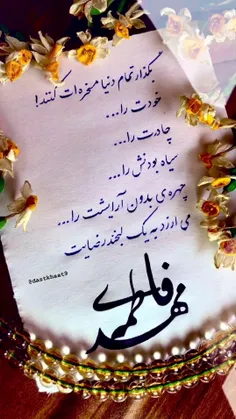 بگذار تمام دنیا مسخره ات کنند!
خودت را...
چادرت را...
سیاه بودنش را...
چهره ی بدون آرایشت را...
می ارزد به یک لبخند رضایت
مهدی فاطمه
@dastkhaat@